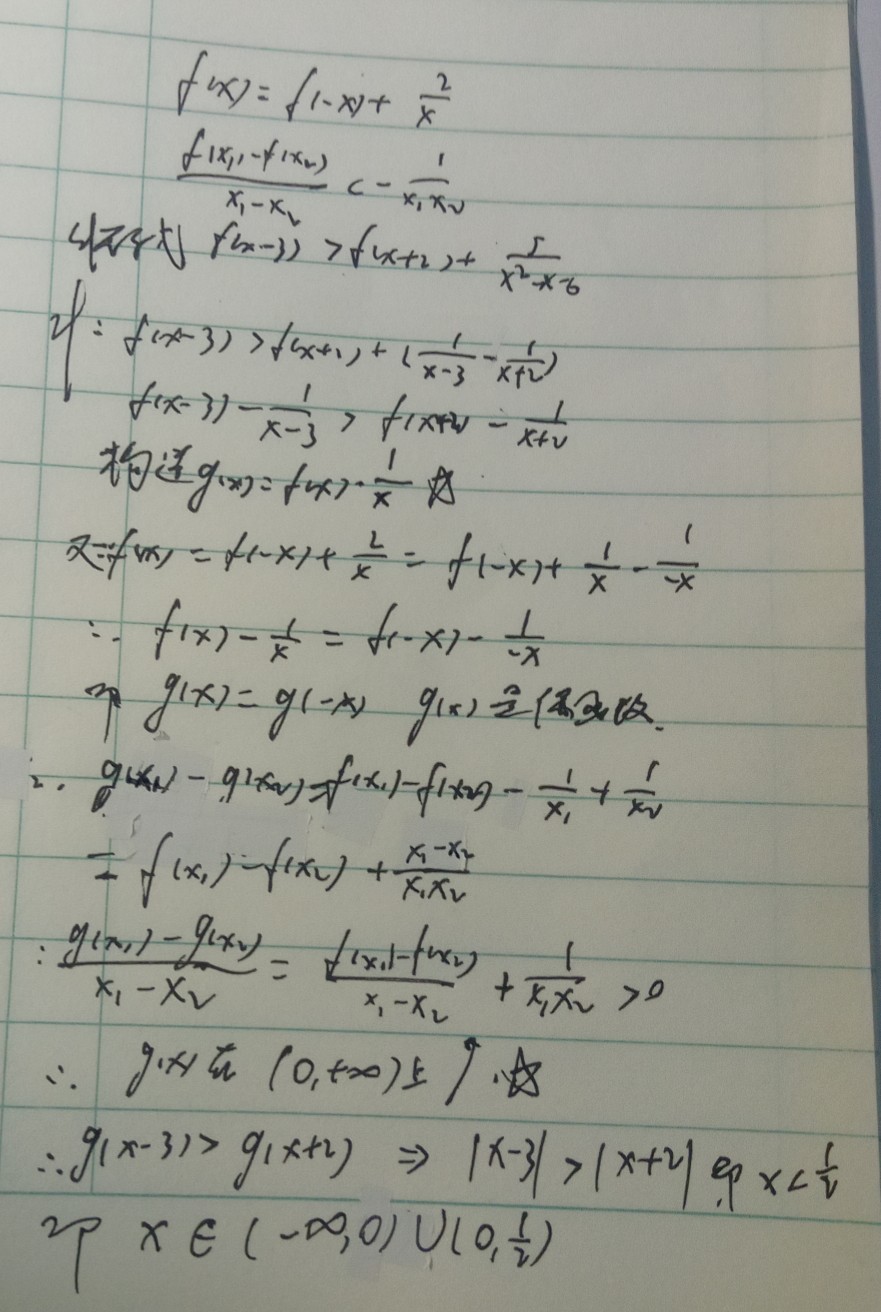 f(x)=f(-x)+ 2/x
(f(x₁)-f(x₂))/(x₁-x₂) < - 1/(x₁x₂)
f(x-3) > f(x+2)+ 5/(x²-x-6)
: f(x-3) > f(x+2) + (1/(x-3) - 1/(x+2))
f(x-3) - 1/(x-3) > f(x+2) - 1/(x+2)
构造 g(x)=f(x)-1/x ☆
又∵f(x) = f(-x)+ 2/x = f(-x)+ 1/x - 1/(-x)
∴ f(x) - 1/x = f(-x) - 1/(-x)
即 g(x)=g(-x) g(x)是偶函数.
∴ g(x₁) - g(x₂)=f(x₁)-f(x₂) - 1/x₁ + 1/x₂
= f(x₁)-f(x₂) + (x₁-x₂)/(x₁x₂)
∴ (g(x₁)-g(x₂))/(x₁-x₂) = (f(x₁)-f(x₂))/(x₁-x₂) + 1/(x₁x₂) >0
∴ g(x)在 (0,+∞)上↑.☆
∴g(x-3)> g(x+2) ⇒ |x-3|>|x+2| 即 x<1/2
即 x∈(-∞,0)∪(0,1/2)